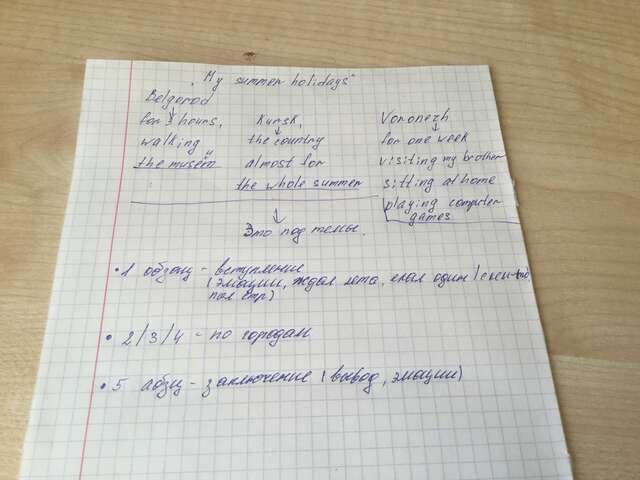 „My summer holidays"
Belgorod
for 3 hours,
walking
the museum
Kursk,
the country
almost for
the whole summer
Voronezh
for one week
visiting my brother
sitting at home
playing computer
games
Это под темы.
• 1 абзац - вступление
(эмоции, ждал лета, ехал один /
• 2/3/4 - по городам
• 5 абзац - заключение (вывод, эмоции)